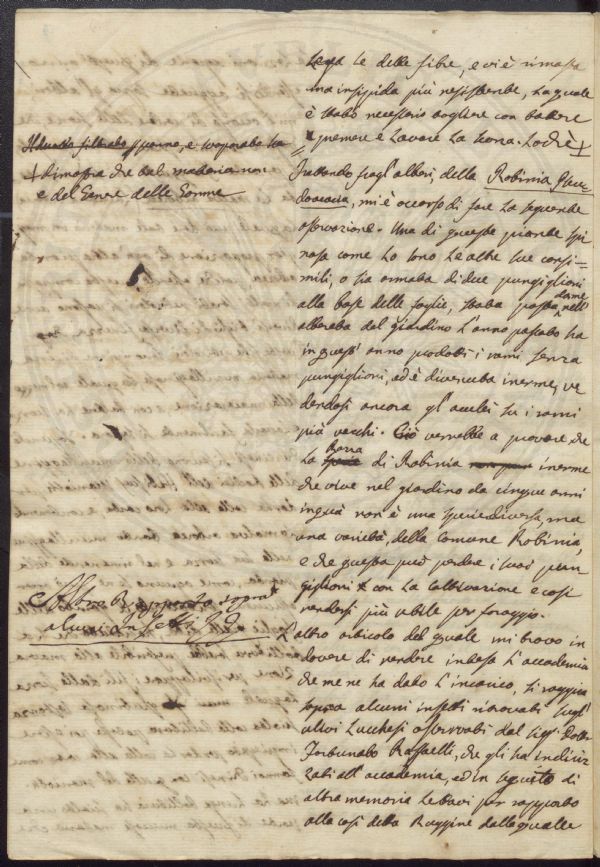 terza le delle fibre, e vi è rimasta
una insipida più resistente, la quale
è stato necessario togliere con battere
premere e lavare la terza. Lochè +
Trattando pegl'alberi, della Robinia Pseu
doacacia, mi è occorso di fare la seguente
osservazione. Una di queste piante spi
nosa come lo sono le altre sue consi=
mili, o sia armata di due pungiglioni
alla base delle foglie, stata posta come nell'
alberata del giardino l'anno passato ha
in quest'anno prodotti i rami senza
pungiglioni, ed è divenuta inerme, ve
dendosi ancora gl'aculei su i rami
più vecchi. Ciò verrebbe a provare che
la Razza di Robinia inerme
che vive nel giardino da cinque anni
in quà non è una specie diversa, ma
una varietà, della comune Robinia,
e che questa può perdere i suoi pun
giglioni con la cultivazione e così
rendersi più utile per foraggio.
L'altro articolo del quale mi trovo in
dovere di rendere intesa l'accademia
che me ne ha dato l'incarico, si raggira
sopra alcuni insetti ritrovati sugl'
ulivi Lucchesi osservati dal Sigr. Dottr
Fortunato Raffaelli, che gli ha indiriz
zati all'accademia, ed in seguito di
altra memoria lettavi per rapporto
alla così detta Ruggine dalla quale
filtrato e svaporato ha
+ dimostra che tal materia non
e del Genere delle Gomme
Altro Rapporto sopra
alcuni Insetti